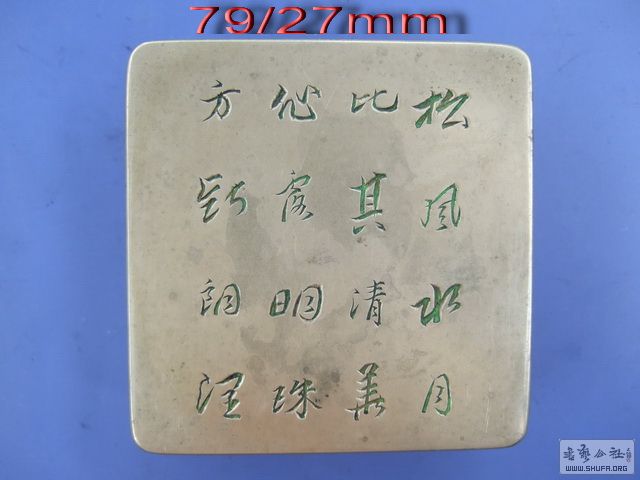 79/27mm
松風水月
比其清華
仙露明珠
方斯朗潤
書藝公社
WWW.SHUFA.ORG